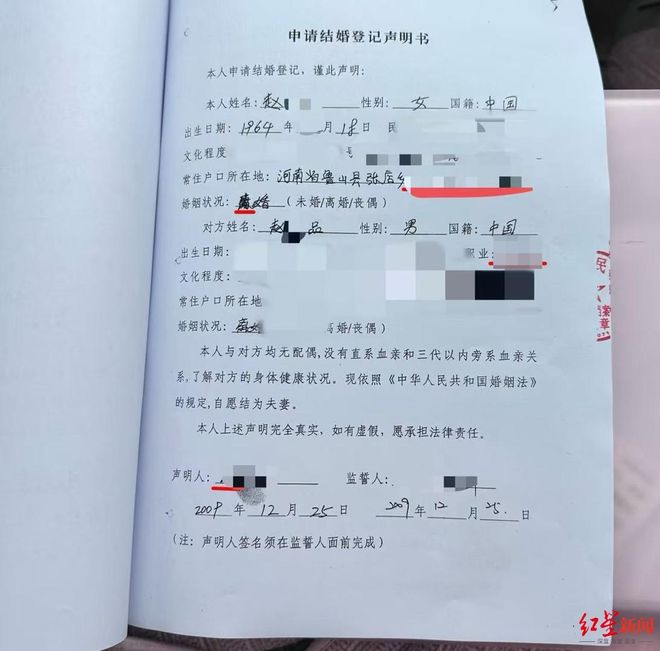 申请结婚登记声明书
本人申请结婚登记,谨此声明:
本人姓名:赵 性别:女 国籍:中国
出生日期:1964年 月18日 民
文化程度
常住户口所在地:河南省鲁山县张店乡
婚姻状况: 婚(未婚/离婚/丧偶)
对方姓名:赵 品 性别:男 国籍:中国
出生日期: 职业:
文化程度:
常住户口所在地
婚姻状况: 离婚/丧偶)
本人与对方均无配偶,没有直系血亲和三代以内旁系血亲关
系,了解对方的身体健康状况。现依照《中华人民共和国婚姻法》
的规定,自愿结为夫妻。
本人上述声明完全真实,如有虚假,愿承担法律责任。
声明人: 监誓人:
2009年12月25日 2009年12月25日
(注:声明人签名须在监誓人面前完成)
红星新闻